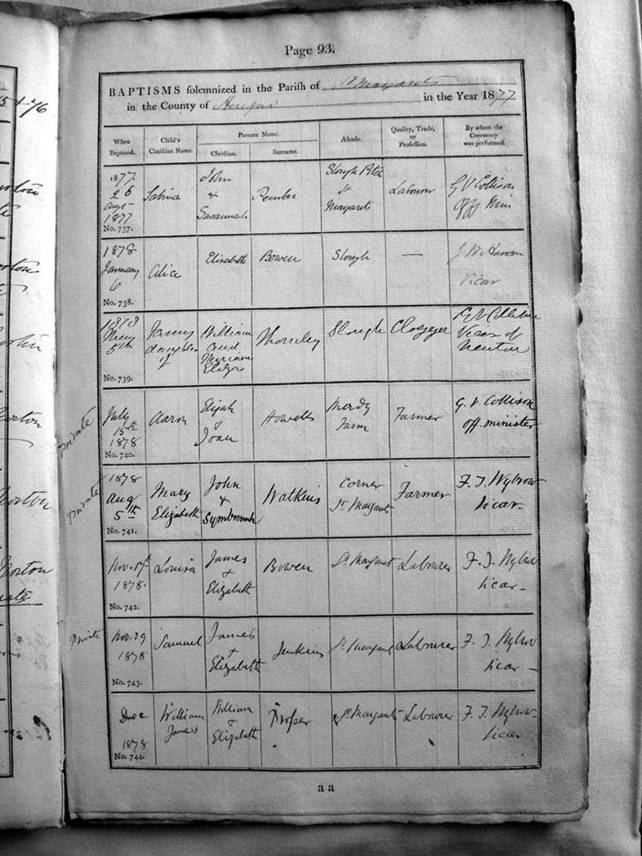 Page 93.
BAPTISMS solemnized in the Parish of St Margarets
in the County of in the Year 1877
When Baptized.
Child's Christian Name.
Parents Name.
Christian.
Surname.
Abode.
Quality, Trade, or Profession.
By whom the Ceremony was performed.
1877
26
Augt
1877
No. 737.
Sabina
John
&
Savannah
Slough
St
Margarets
Labourer
G V Collison
Off Min
1878
January
6
No. 738.
Alice
Elizabeth
Bowen
Slough
—
Vicar
1878
5th
No. 739.
daughter
of
William
and
Slough
Vicar of
July
1878
No. 740.
Private
Aaron
Elijah
&
Joan
Howells
Farm
Farmer
G. V. Collison
off. minister
1878
Aug
5th
No. 741.
Private
Mary
Elizabeth
John
&
Watkins
Corner
St Margarets
Farmer
F. T. Wybrow
Vicar
Nov. 17th
1878.
No. 742.
Louisa
James
+
Elizabeth
Bowen
St Margarets
Labourer
F. T. Wybrow
Vicar
Private
Nov. 29
1878
No. 743.
Samuel
James
+
Elizabeth
Jenkins
St Margarets
Labourer
F. T. Wybrow
Vicar
Dec
1878
No. 744.
William
James
William
+
Elizabeth
Prosser
St Margarets
Labourer
F. T. Wybrow
Vicar
a a